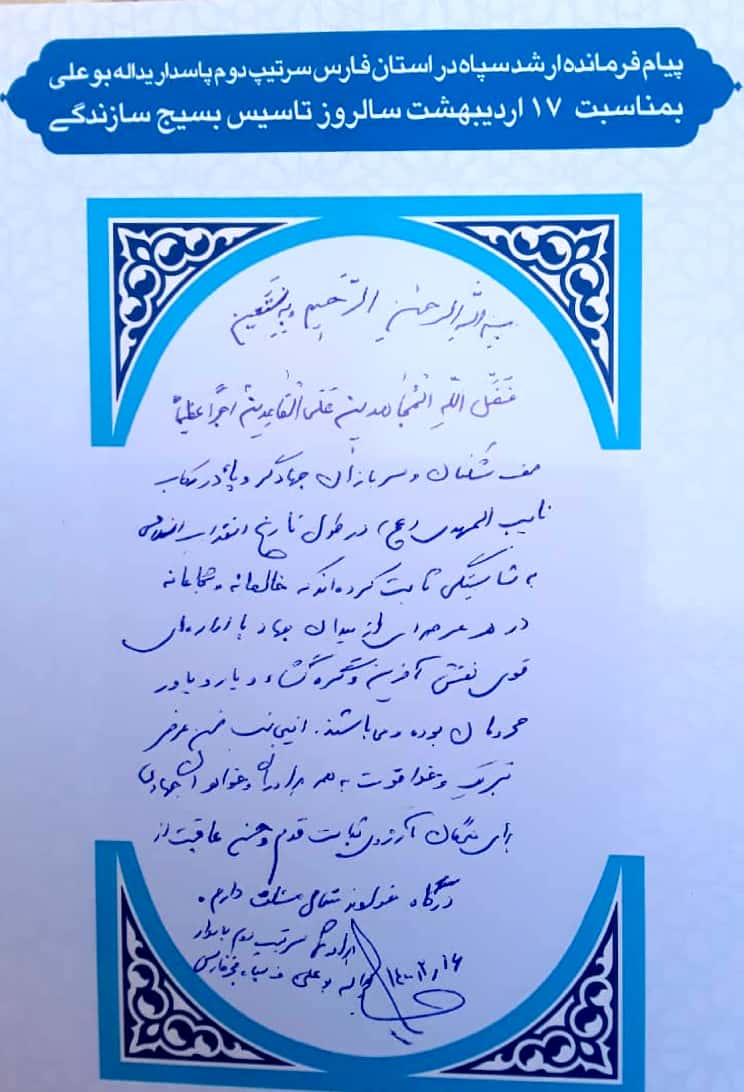 پیام فرمانده ارشد سپاه در استان فارس سرتیپ دوم پاسدار یداله بوعلی
بمناسبت ۱۷ اردیبهشت سالروز تاسیس بسیج سازندگی
بسم الله الرحمن الرحیم و به نستعین
فَضَّلَ اللهُ المُجاهدینَ عَلَی القاعِدینَ اجراً عظیماً
صف شکنان و سربازان جهادگر و پا در رکاب
نایب المهدی (عج) در طول تاریخ انقلاب اسلامی
به شایستگی ثابت کرده‌اند که خالصانه و شجاعانه
در هر عرصه‌ای از میدان جهاد با اراده‌ای
قوی نقش آفرین و گره گشاء و یار و یاور
محرومان بوده و می باشند. اینجانب ضمن عرض
تبریک و خدا قوت به همه برادران و خواهران جهادی
برای همگان آرزوی ثبات قدم و حسن عاقبت از
درگاه خداوند متعال مسئلت دارم.
سرتیپ دوم پاسدار
یداله بوعلی سپاه فجر فارس
۱۴۰۰,۲,۱۶